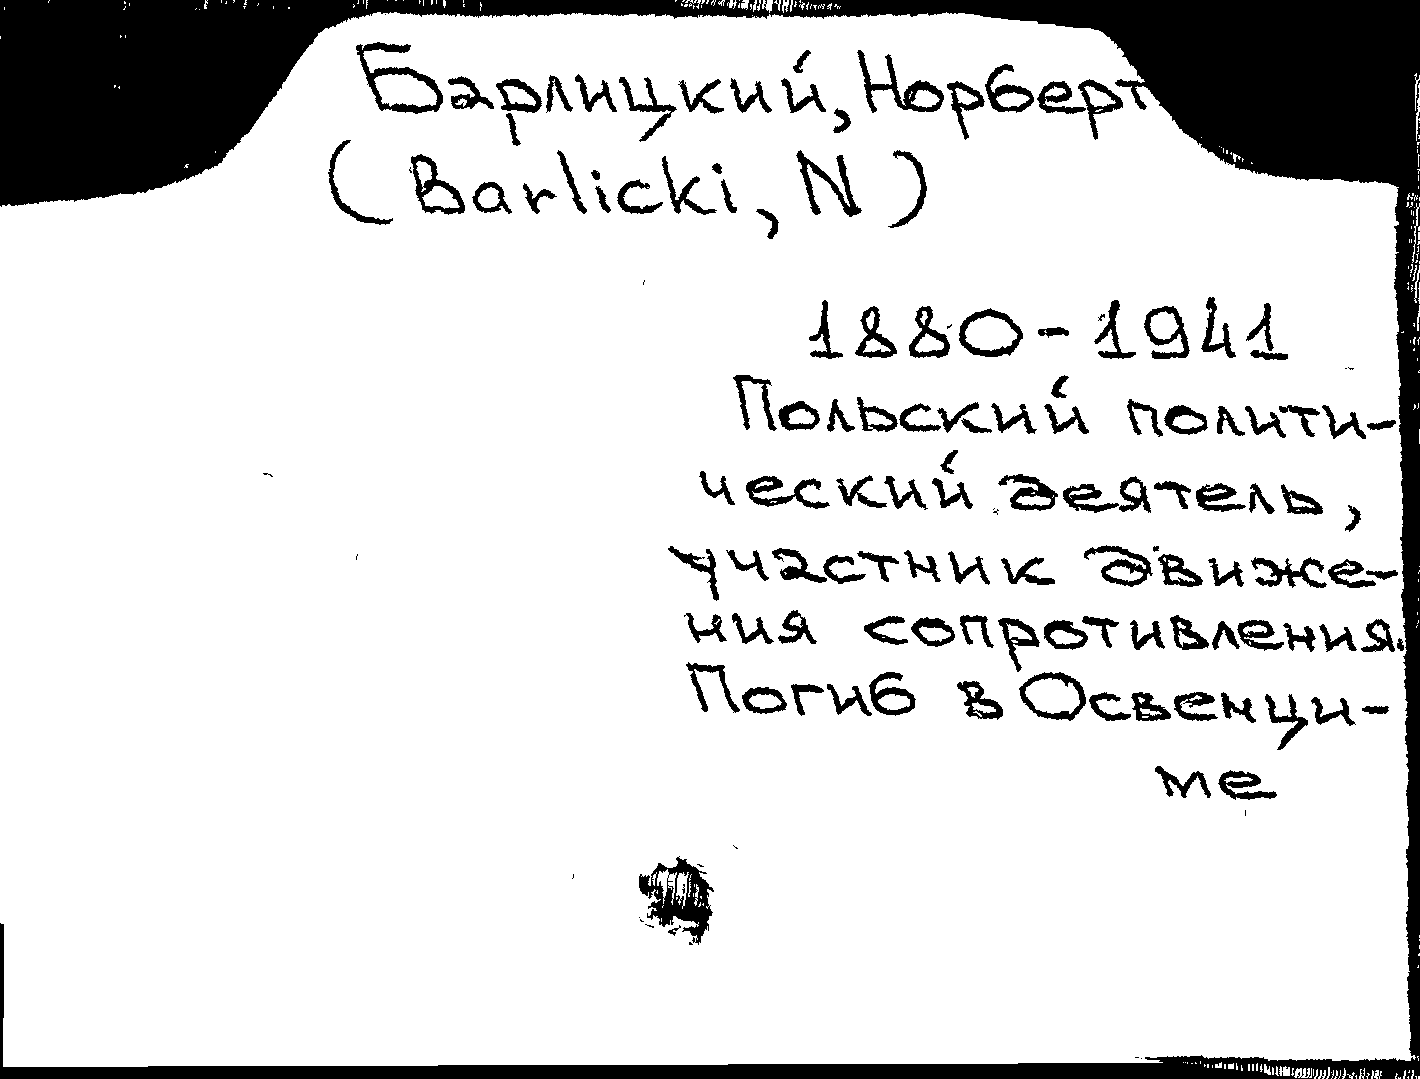 Барлицкий, Норберт
(Barlicki, N)
1880-1941
Польский полити-
ческий деятель,
участник движе-
ния сопротивления.
Погиб в Освенци-
ме